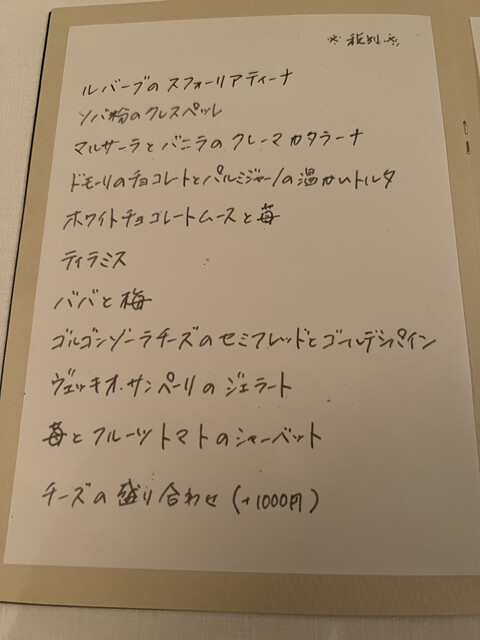 ※ 税別 ※
ルバーブの スフォーリアティーナ
ソバ粉のクレスペッレ
マルサーラと バニラの クレーマカタラーナ
ドモーリのチョコレートとパルミジャーノの温かいトルタ
ホワイトチョコレートムースと苺
ティラミス
ババと梅
ゴルゴンゾーラチーズのセミフレッドとゴールデンパイン
ヴェッキオ・サンペーリの ジェラート
苺と フルーツトマトの シャーベット
チーズの 盛り合わせ (+1000円)